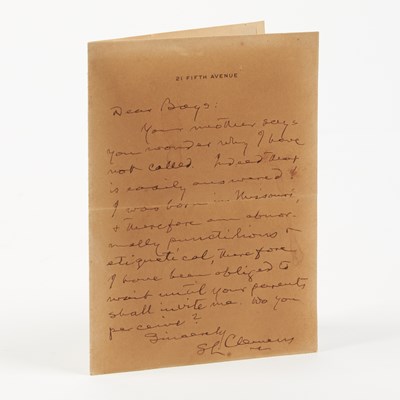 21 FIFTH AVENUE
Dear Boys:
Your mother says
you wonder why I have
not called. Indeed that
is easily answered:
I was born in Missouri,
& therefore am abnor-
mally punctilious &
etiquetical, therefore
I have been obliged to
wait until your parents
shall invite me. Do you
perceive?
Sincerely
SL. Clemens